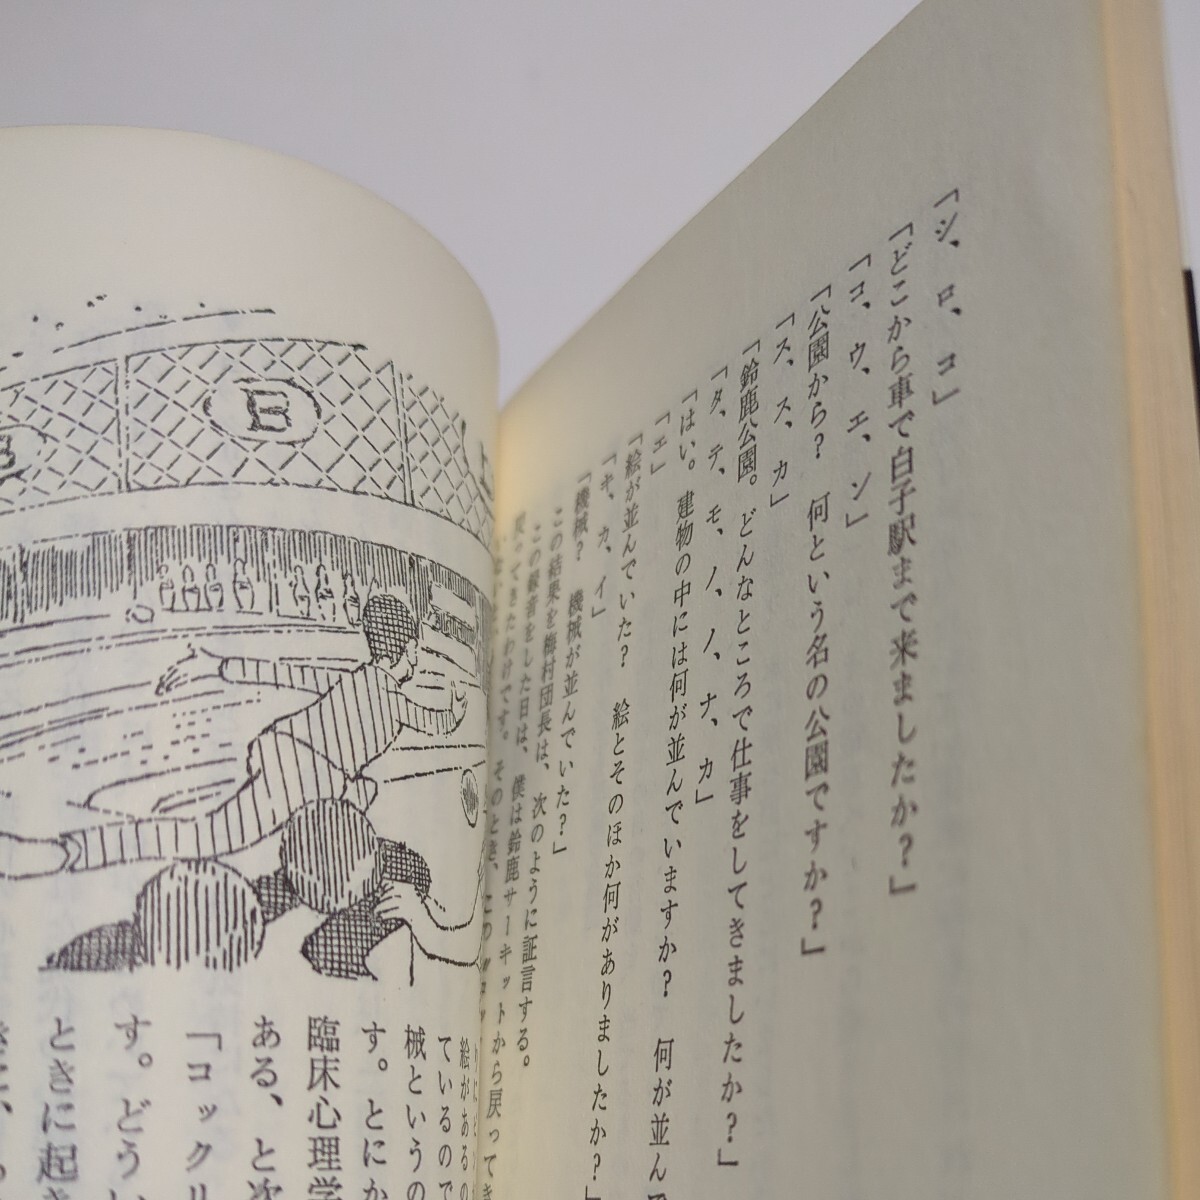 「シ、ロ、コ」
「どこから車で白子駅まで来ましたか？」
「コ、ウ、エ、ン」
「公園から？　何という名の公園ですか？」
「ス、ス、カ」
「鈴鹿公園。どんなところで仕事をしてきましたか？」
「タ、テ、モ、ノ、ノ、ナ、カ」
「はい。建物の中には何が並んでいますか？　何が並んで
「エ」
「絵が並んでいた？　絵とそのほか何がありましたか？」
「キ、カ、イ」
「機械？　機械が並んでいた？」
この結果を梅村団長は、次のように証言する。
この録音をした日は、僕は鈴鹿サーキットから戻ってき
戻ってきたわけです。そのとき、
B
B
絵があるの
ているので
械というの
す。とにか
臨床心理学
ある、と次
「コックリ
す。どうい
ときに起き